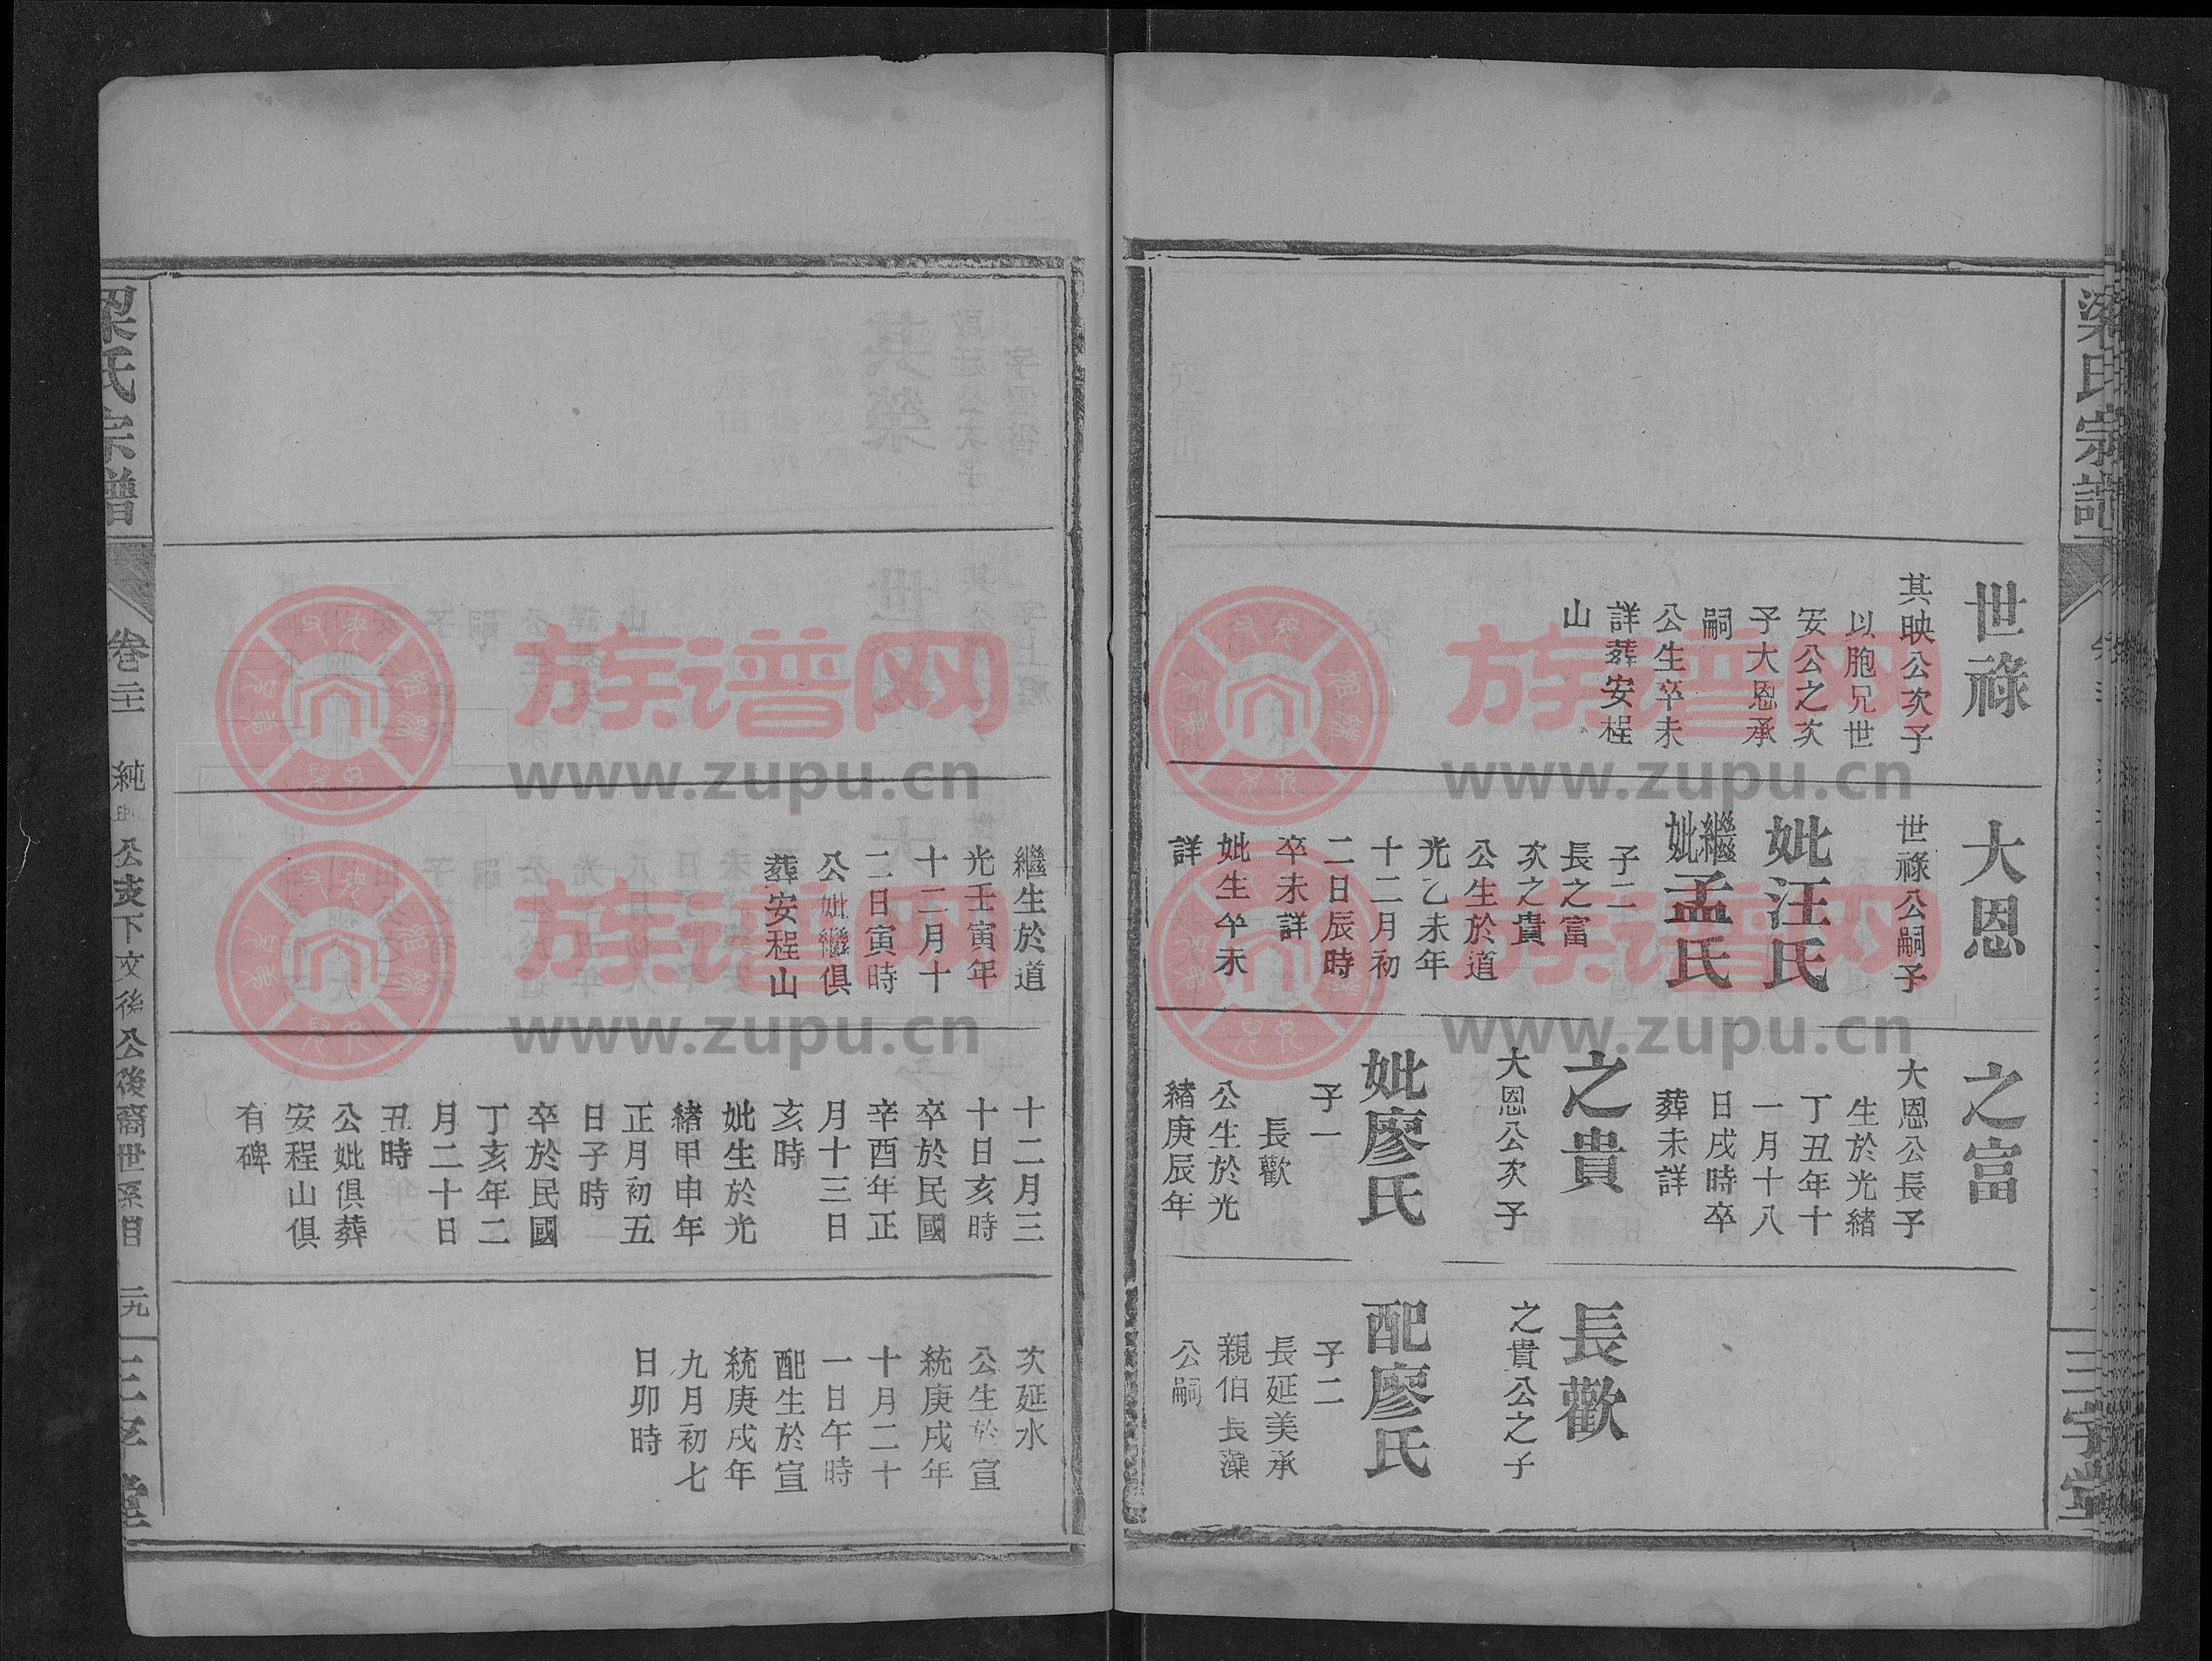 世祿
其映公次子
以胞兄世
安公之次
子大恩承
嗣
公生卒未
詳葬安程
山
大恩
世祿公嗣子
妣汪氏
繼妣孟氏
子二
長之富
次之貴
公生於道
光乙未年
十二月初
二日辰時
卒未詳
妣生卒未
詳
之富
大恩公長子
生於光緒
丁丑年十
一月十八
日戌時卒
葬未詳
之貴
大恩公次子
妣廖氏
子一
長歡
公生於光
緒庚辰年
長歡
之貴公之子
配廖氏
子二
長延美承
親伯長藻
公嗣
繼生於道
光壬寅年
十二月十
二日寅時
公妣繼俱
葬安程山
十二月三
十日亥時
卒於民國
辛酉年正
月十三日
亥時
妣生於光
緒甲申年
正月初五
日子時
卒於民國
丁亥年二
月二十日
丑時
公妣俱葬
安程山俱
有碑
次延水
公生於宣
統庚戌年
十月二十
一日午時
配生於宣
統庚戌年
九月初七
日卯時
梁氏宗譜
公支下文後公後裔世系目
二九
三字堂
族谱网
www.zupu.cn
族谱网
www.zupu.cn
族谱网
www.zupu.cn
族谱网
www.zupu.cn